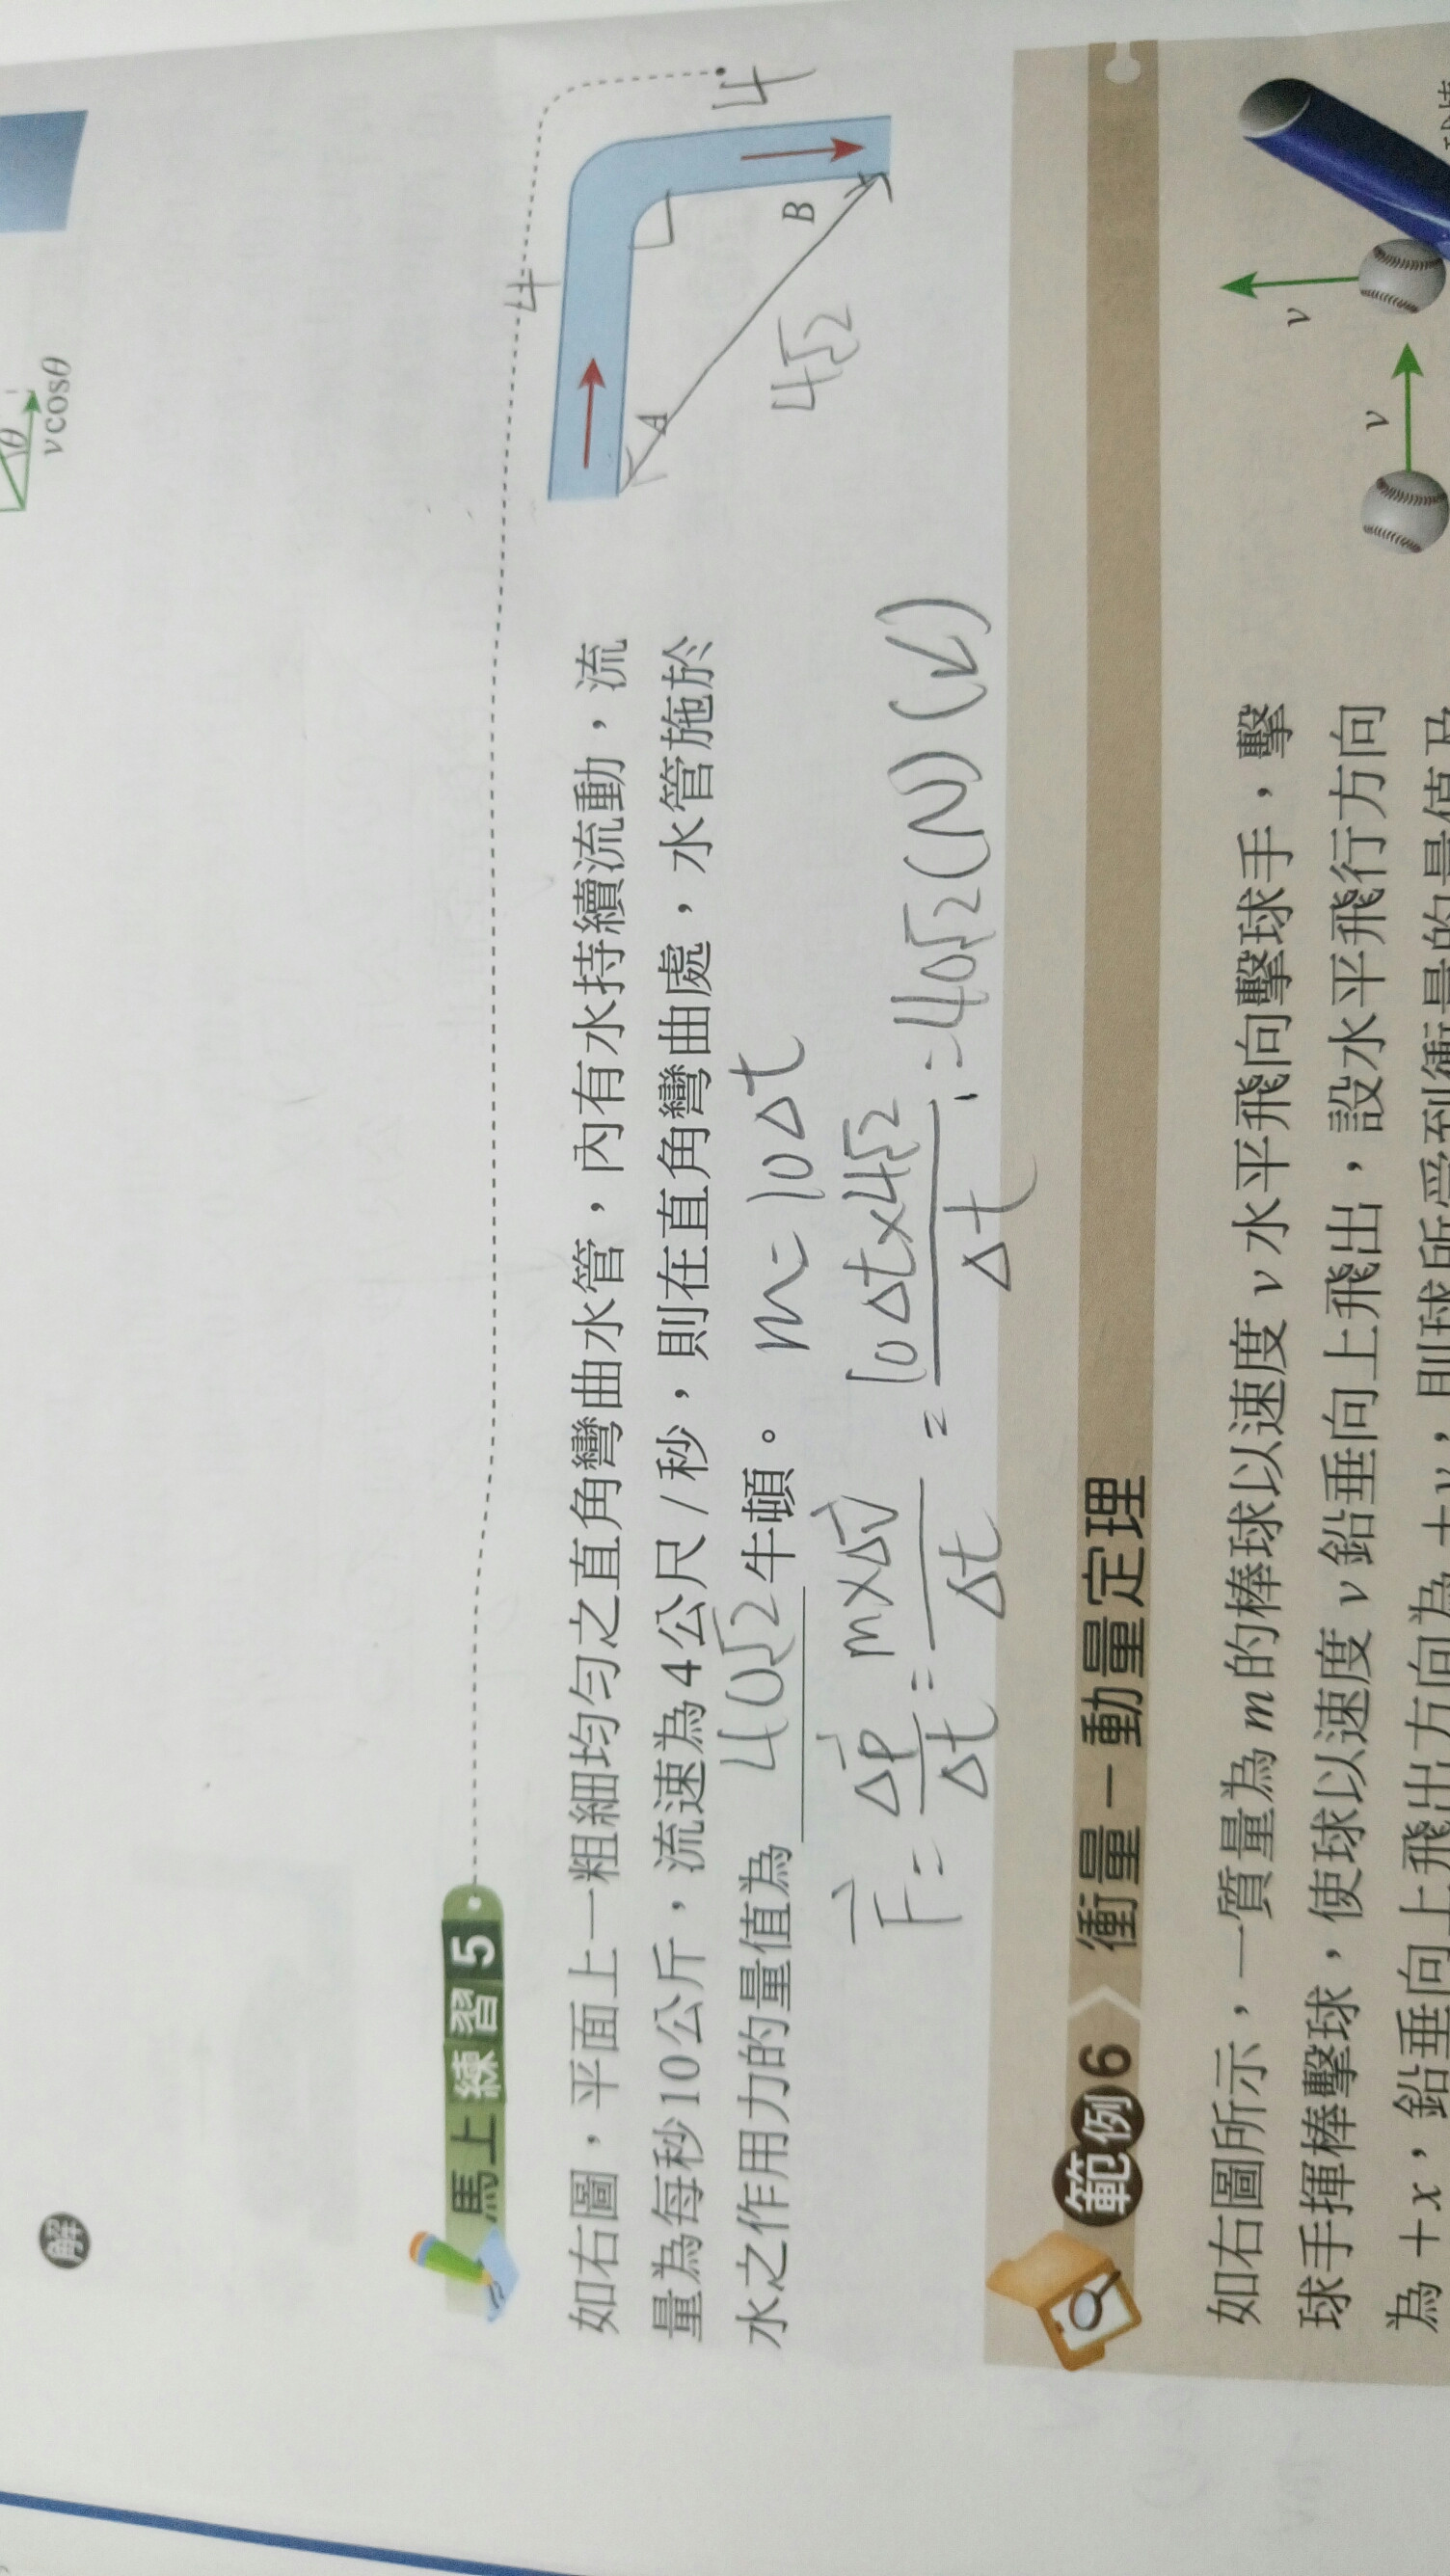 θ
v cosθ
解
馬上練習5
如右圖，平面上一粗細均勻之直角彎曲水管，內有水持續流動，流
量為每秒10公斤，流速為4公尺/秒，則在直角彎曲處，水管施於
水之作用力的量值為 40√2 牛頓。
m=10Δt
F=Δp/Δt=m×Δv/Δt=10Δt×4√2/Δt=40√2(N)(↙)
4
4
A
B
4√2
範例6 衝量－動量定理
如右圖所示，一質量為 m 的棒球以速度 v 水平飛向擊球手，擊
球手揮棒擊球，使球以速度 v 鉛垂向上飛出，設水平飛行方向
為 +x，鉛垂向上飛出方向為 +y，則球所受到衝量的量值及
v
v